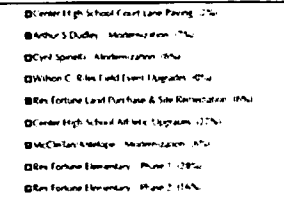 Center High School Court Lane Paving (2%)
Arthur S Dudley - Modernization (7%)
Cyril Spinelli - Modernization (6%)
Wilson C. Riles Field Event Upgrades
Rex Fortune Land Purchase & Site Remediation (8%)
Center High School Athletic Upgrades
McClellan/Antelope - Modernization
Rex Fortune Elementary - Phase 1 (28%)
Rex Fortune Elementary - Phase 2 (16%)